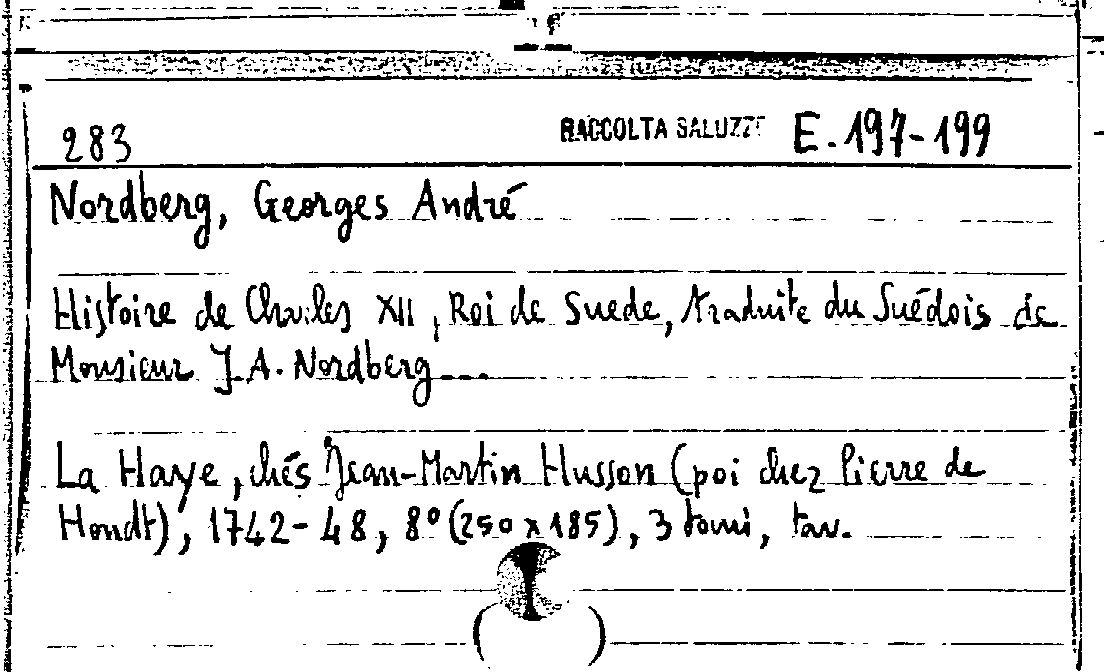 283 RACCOLTA SALUZZ E. 197-199
Nordberg, Georges André
Histoire de Charles XII, Roi de Suede, traduite du Suédois de
Monsieur J.A. Nordberg...
La Haye, chés Jean-Martin Husson (poi chez Pierre de
Hondt), 1742-48, 8° (250 x 185), 3 tomi, tav.